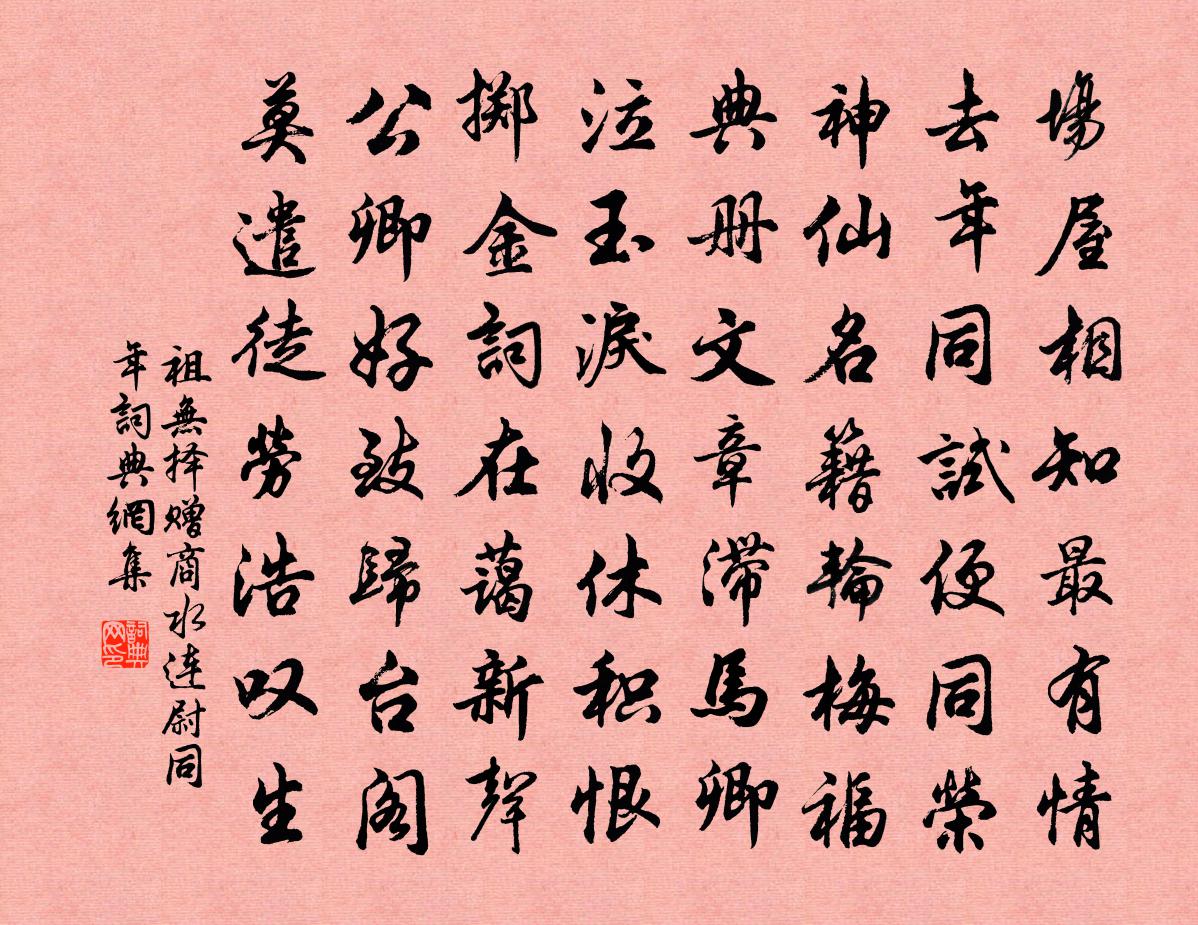 場屋相知最有情
去年同試便同榮
神仙名籍輪梅福
典册文章滯馬卿
泣玉淚收休积恨
擲金詞在藹新聲
公卿好致歸台阁
莫遣徒勞浩叹生
祖無择赠商水连尉同
年詞典網集
詞典网印